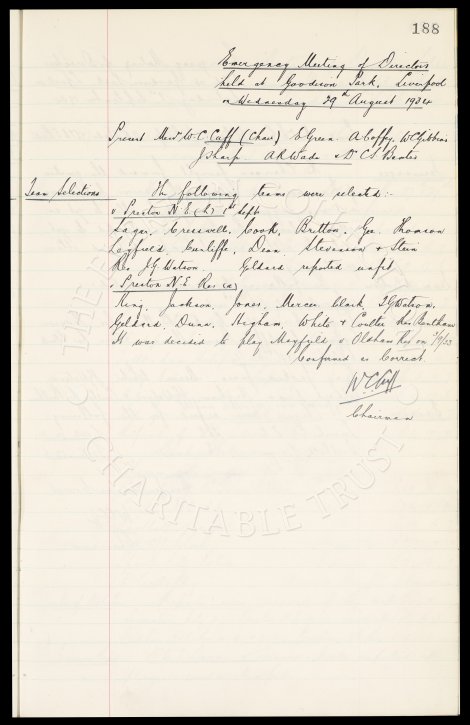 188
Emergency Meeting of Directors
held at Goodison Park, Liverpool
on Wednesday 29th August 1934
Present Messrs W. C. Cuff (Chair) E Green. A Coffey, W C Gibbins
J Sharp A R Wade & Dr C S Baxter
Team Selections The following teams were selected:-
v Preston N. E. (h) 1st Sept
Sagar, Cresswell, Cook, Britton, Gee, Thomson
Leyfield Cunliffe, Dean, Stevenson & Stein
Res. J G Watson. Geldard reported unfit
v Preston N. E. Res (a)
King, Jackson, Jones, Mercer Clark T G Watson,
Geldard, Dunn, Higham, White & Coulter Res
It was decided to play Mayfield v Oldham Res on
Confirmed as Correct
W C Cuff
Chairman
CHARITABLE TRUST